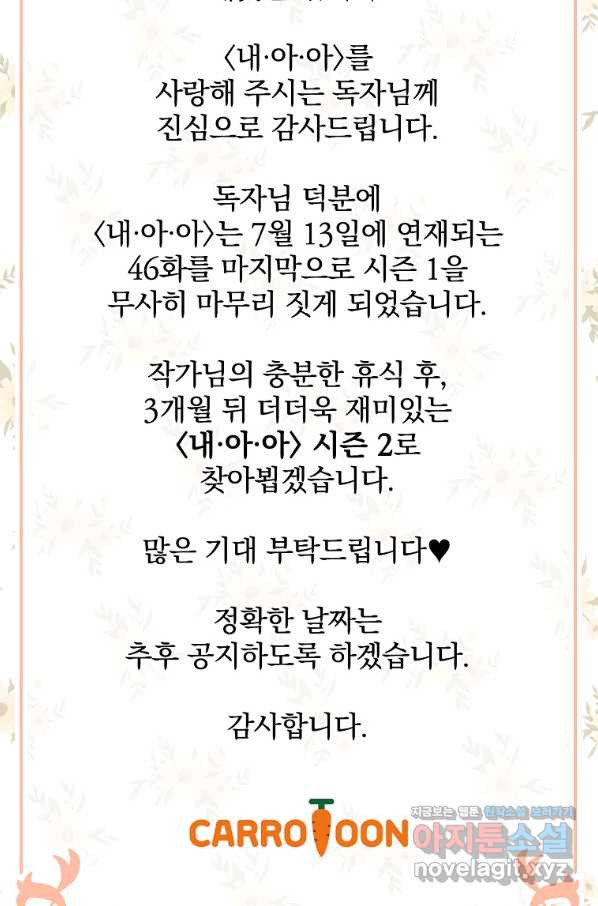 〈내·아·아〉를
사랑해 주시는 독자님께
진심으로 감사드립니다.
독자님 덕분에
〈내·아·아〉는 7월 13일에 연재되는
46화를 마지막으로 시즌 1을
무사히 마무리 짓게 되었습니다.
작가님의 충분한 휴식 후,
3개월 뒤 더더욱 재미있는
〈내·아·아〉 시즌 2로
찾아뵙겠습니다.
많은 기대 부탁드립니다♥
정확한 날짜는
추후 공지하도록 하겠습니다.
감사합니다.
CARROTOON
지금보는 웹툰 원작소설 보러가기
아지툰소설
novelagit.xyz